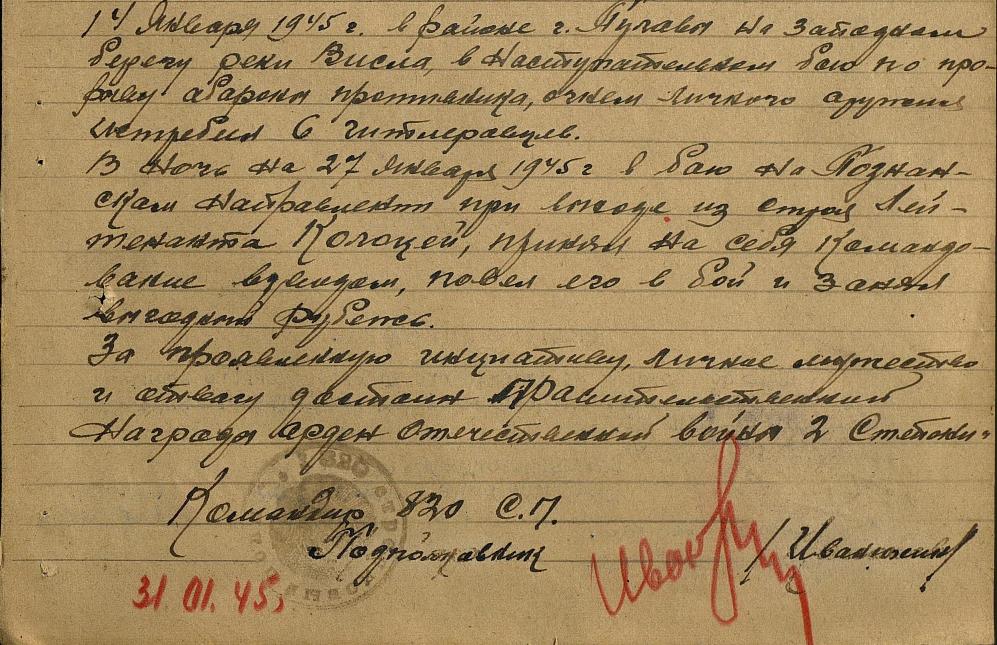 14 Января 1945 г. в районе г. Пулавы на западном
берегу реки Висла, в наступательном бою по про-
рыву обороны противника, огнем личного оружия
истребил 6 гитлеровцев.
В ночь на 27 Января 1945 г в бою на Познан-
ском направлении при выходе из строя Лей-
тенанта Колоцей, принял на себя командо-
вание взводом, повел его в бой и занял
выгодный рубеж.
За проявленную инициативу, личное мужество
и отвагу достоин Правительственной
Награды орден Отечественной войны 2 Степени.
Командир 820 С.П.
Подполковник
31.01.45